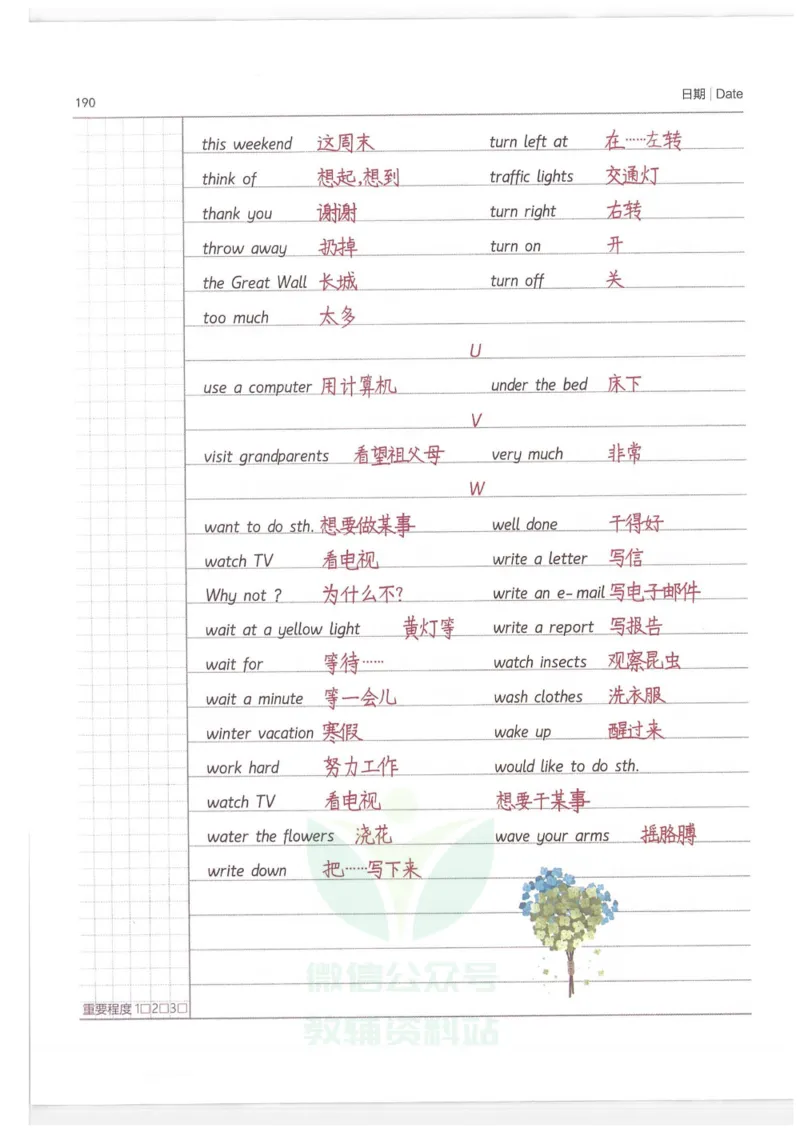 190
日期 | Date
this weekend 这周末 turn left at 在……左转
think of 想起,想到 traffic lights 交通灯
thank you 谢谢 turn right 右转
throw away 扔掉 turn on 开
the Great Wall 长城 turn off 关
too much 太多
U
use a computer 用计算机 under the bed 床下
V
visit grandparents 看望祖父母 very much 非常
W
want to do sth. 想要做某事 well done 干得好
watch TV 看电视 write a letter 写信
Why not ? 为什么不? write an e-mail 写电子邮件
wait at a yellow light 黄灯等 write a report 写报告
wait for 等待…… watch insects 观察昆虫
wait a minute 等一会儿 wash clothes 洗衣服
winter vacation 寒假 wake up 醒过来
work hard 努力工作 would like to do sth.
watch TV 看电视 想要干某事
water the flowers 浇花 wave your arms 摇胳膊
write down 把……写下来
微信公众号
重要程度 1□2□3□
教辅资料站